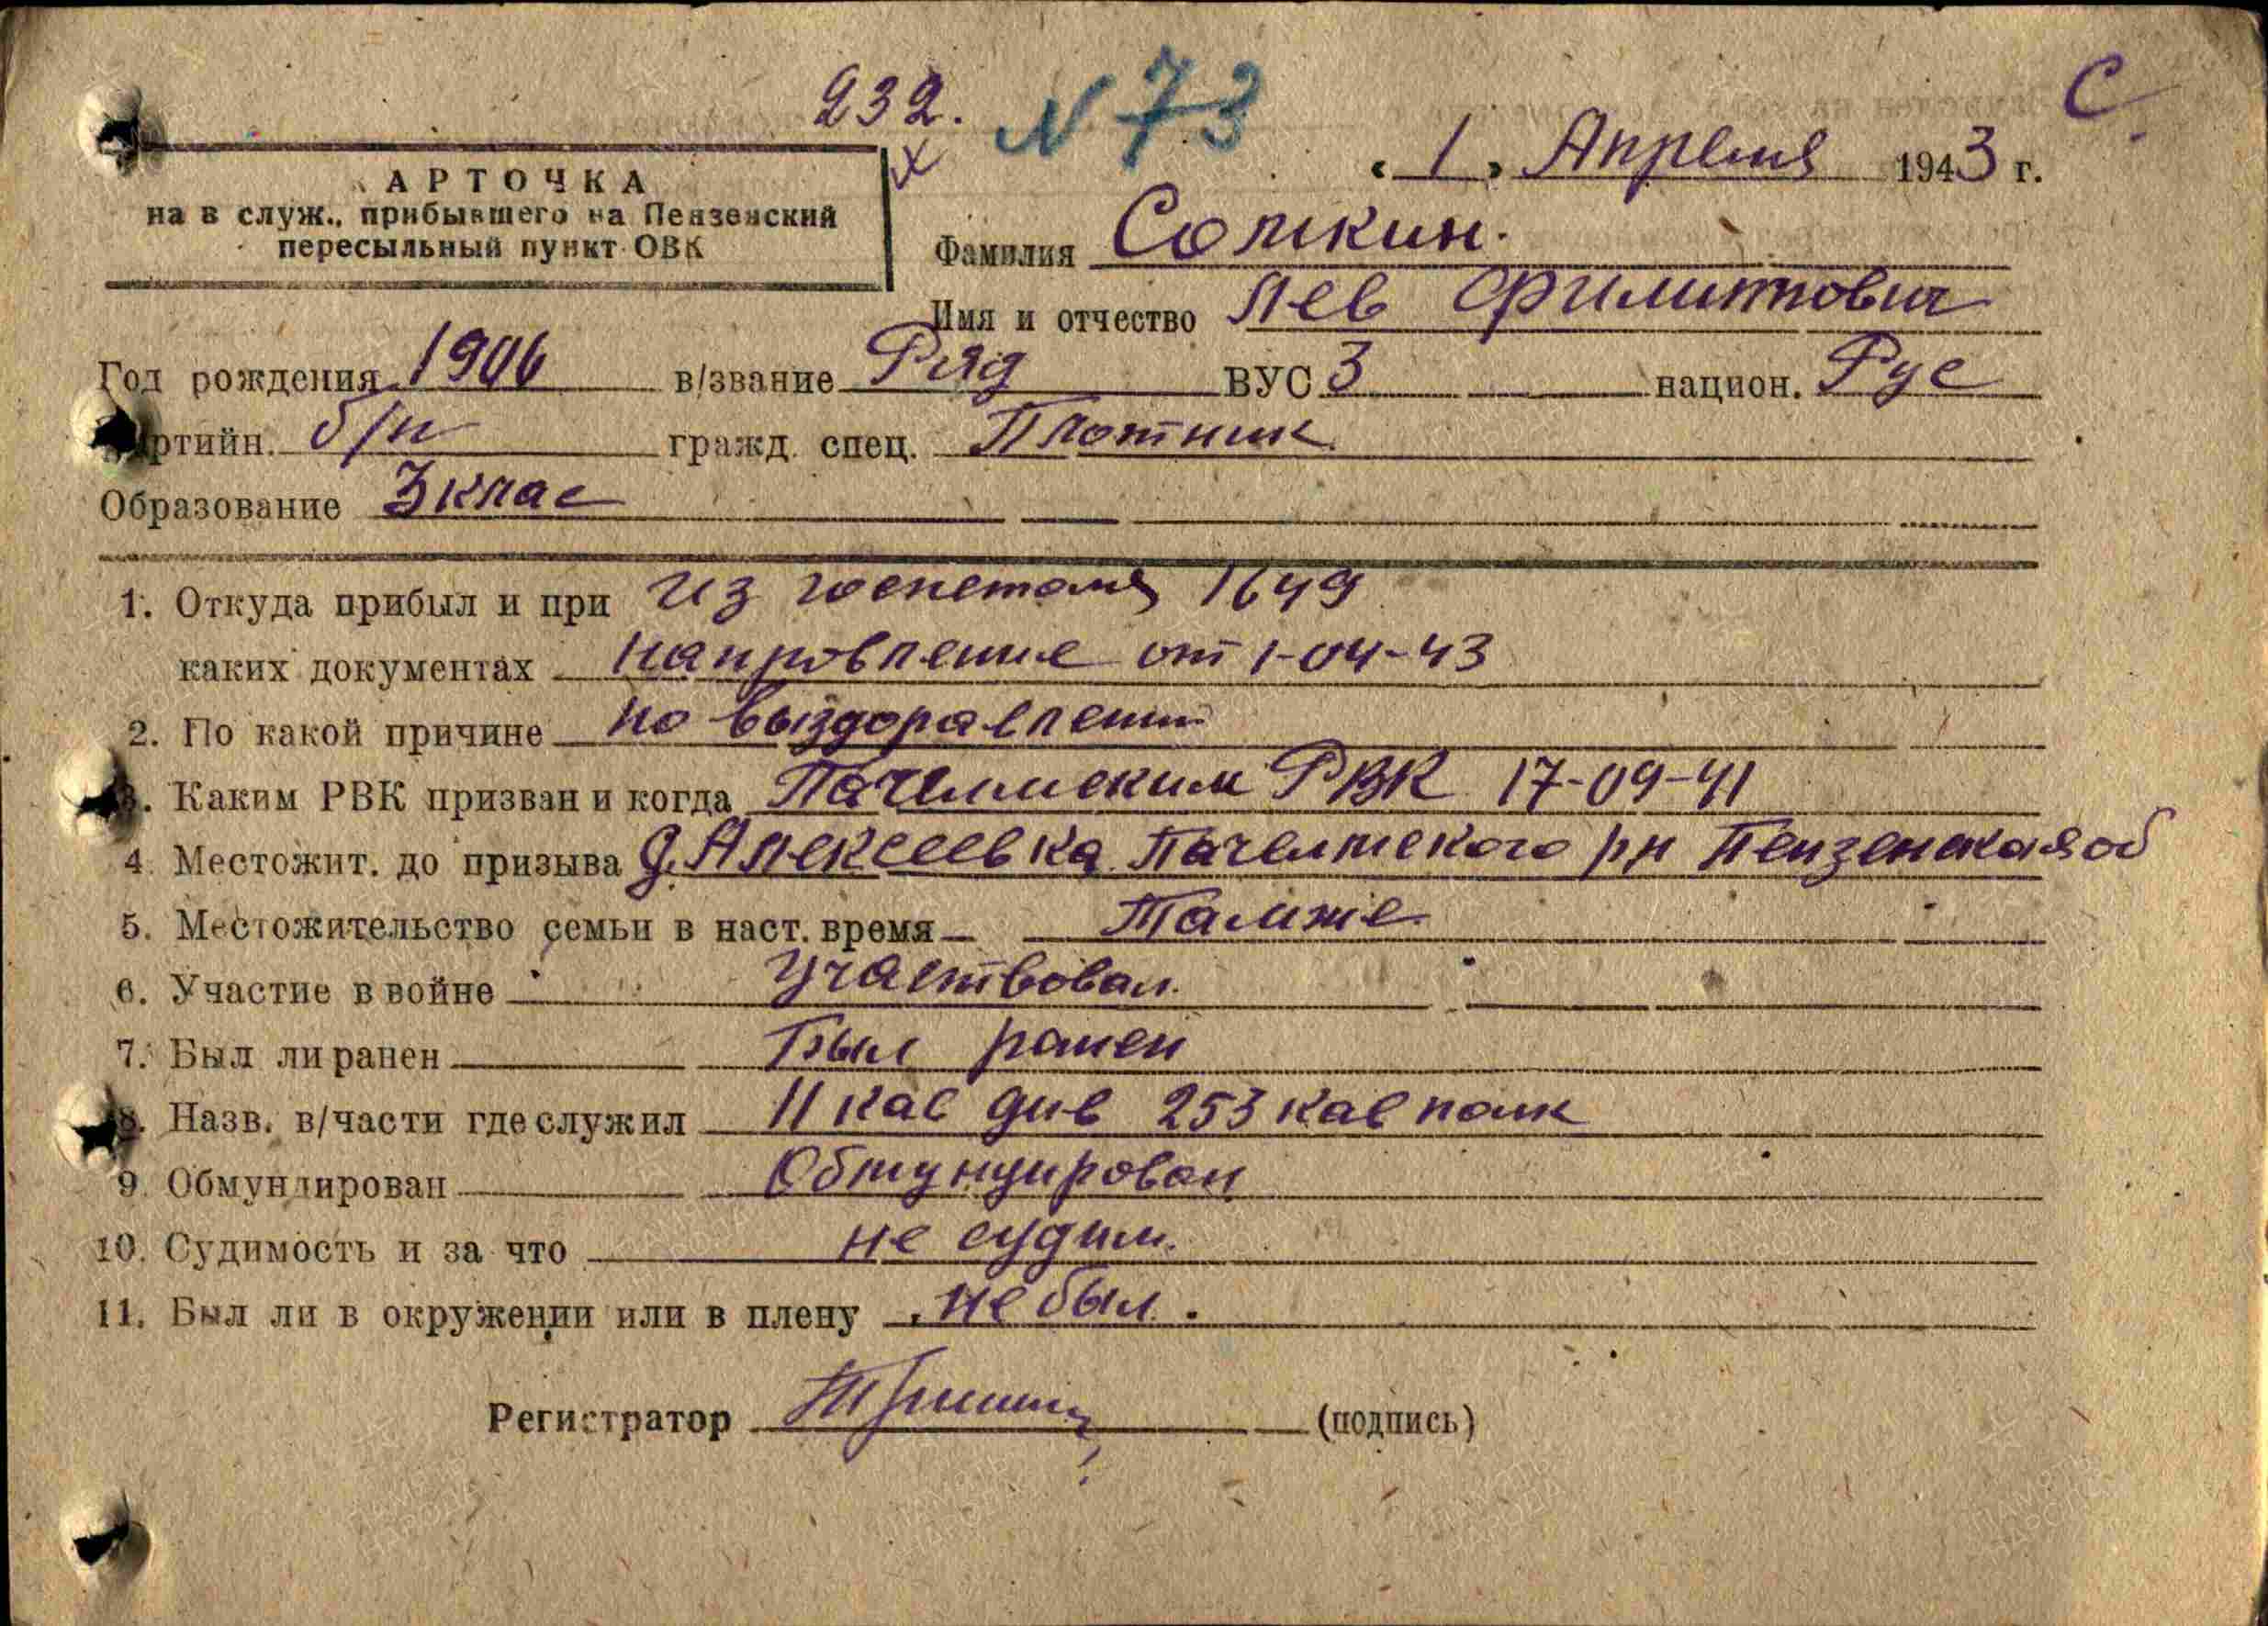 232.
N 73
С
АРТОЧКА
на в служ., прибывшего на Пензенский
пересыльный пункт ОВК
« 1 » Апреля 1943 г.
Фамилия Сомкин.
Имя и отчество Лев Филиттович
Год рождения 1906 в/звание Ряд ВУС 3 национ. Рус
ртийн. б/п гражд. спец. Плотник
Образование 3 клас
1. Откуда прибыл и при из госпеталя 1649
каких документах напровление от 1-04-43
2. По какой причине по выздоравлении
3. Каким РВК призван и когда Пачелмским РВК 17-09-41
4. Местожит. до призыва д. Алексеевка Пачелмского р/н Пензенская об
5. Местожительство семьи в наст. время Тамже
6. Участие в войне Участвовал.
7. Был ли ранен Был ранен
8. Назв. в/части где служил 11 кав див 253 кав полк
9. Обмундирован Обмундирован
10. Судимость и за что не судим.
11. Был ли в окружении или в плену не был.
Регистратор (подпись)